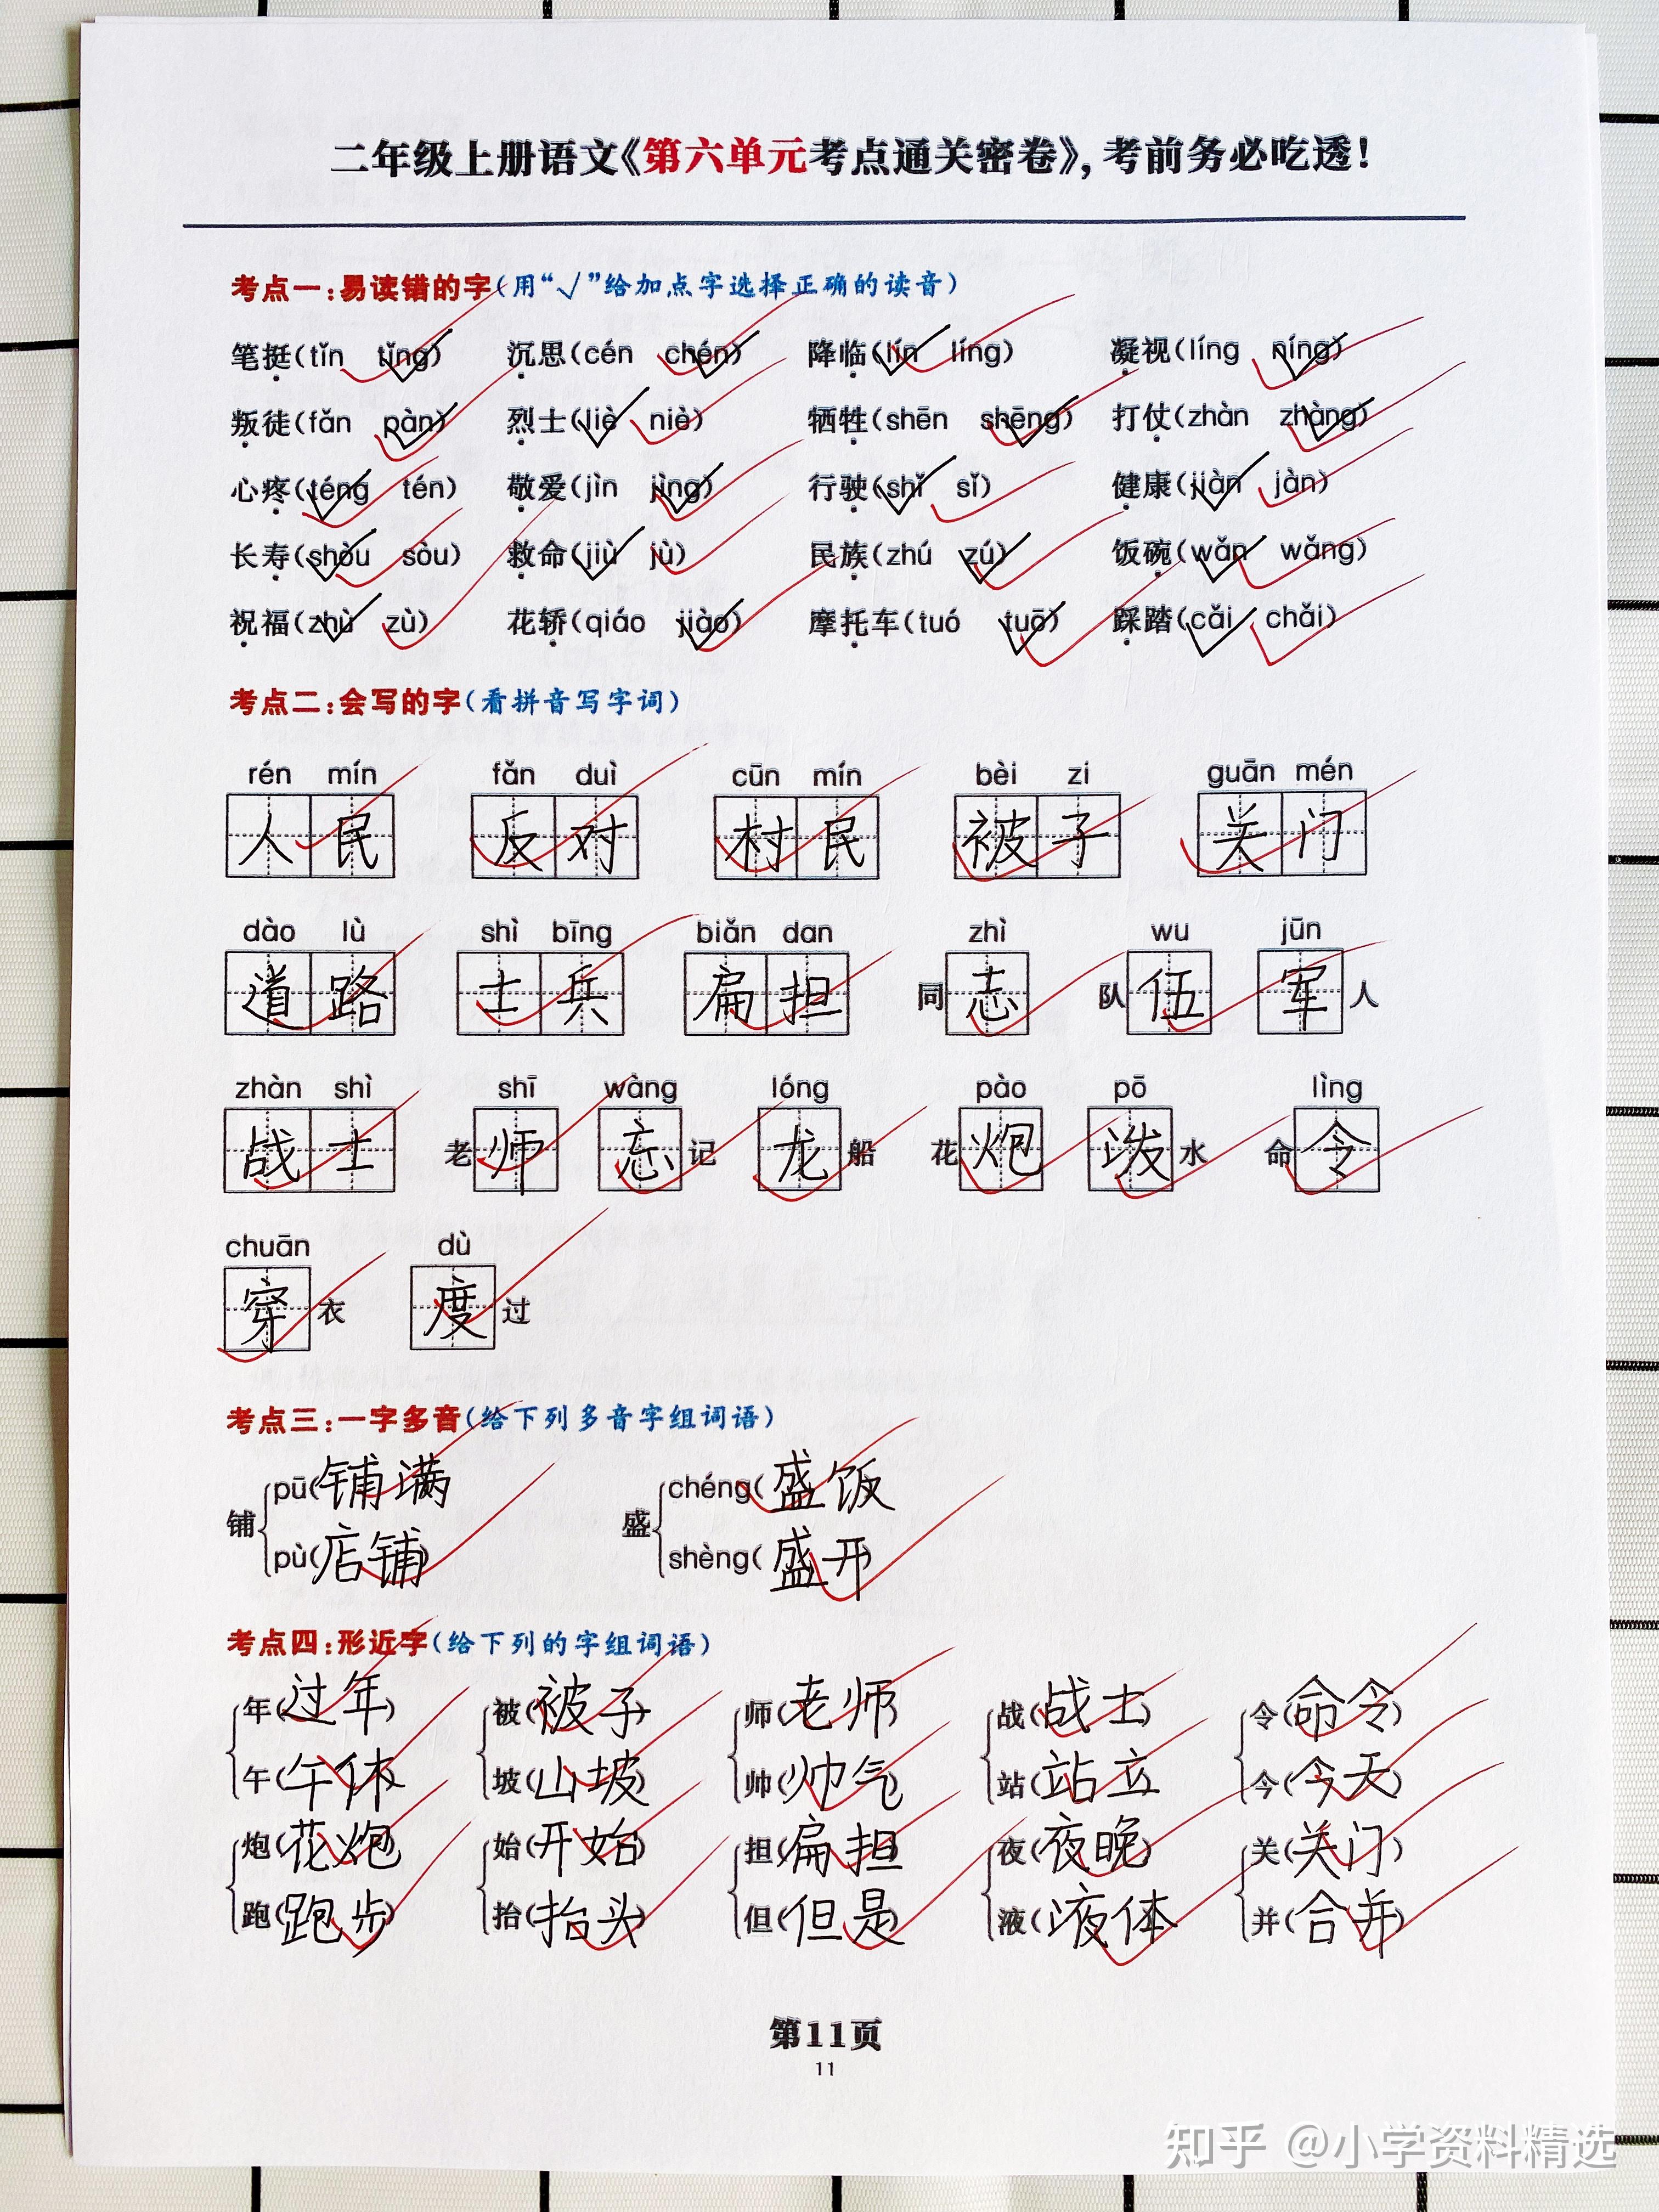 二年级上册语文《第六单元考点通关密卷》，考前务必吃透！
考点一：易读错的字（用“√”给加点字选择正确的读音）
笔挺(tǐn tǐng) 沉思(cén chén) 降临(lín líng) 凝视(líng níng)
叛徒(fǎn pàn) 烈士(liè niè) 牺牲(shēn shēng) 打仗(zhàn zhàng)
心疼(téng tén) 敬爱(jìn jìng) 行驶(shǐ sǐ) 健康(jiàn jàn)
长寿(shòu sòu) 救命(jiù jù) 民族(zhú zú) 饭碗(wǎn wǎng)
祝福(zhù zù) 花轿(qiáo jiào) 摩托车(tuó tuō) 踩踏(cǎi chǎi)
考点二：会写的字（看拼音写字词）
rén mín fǎn duì cūn mín bèi zi guān mén
人民 反对 村民 被子 关门
dào lù shì bīng biǎn dan zhì wu jūn
道路 士兵 扁担 同志 队伍 军人
zhàn shì shī wàng lóng pào pō lìng
战士 老师 忘记 龙船 花炮 泼水 命令
chuān dù
穿衣 度过
考点三：一字多音（给下列多音字组词语）
铺 pū(铺满) 盛 chéng(盛饭
pù(店铺) shèng(盛开)
考点四：形近字（给下列的字组词语）
年(过年) 被(被子) 师(老师) 战(战士) 令(命令)
午(午休) 坡(山坡) 帅(帅气) 站(站立) 今(今天)
炮(花炮) 始(开始) 担(扁担) 夜(夜晚) 关(关门)
跑(跑步) 抬(抬头) 但(但是) 液(液体) 并(合并)
第11页
11
知乎 @小学资料精选